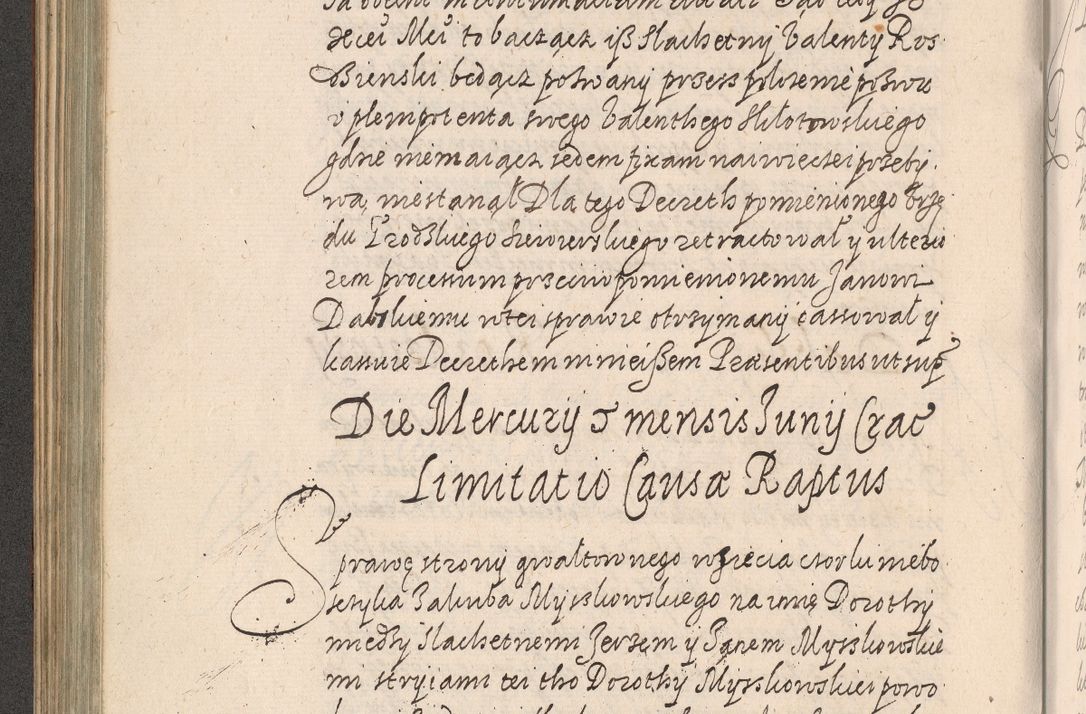 Xcei Mci to baczącz iß slachetny Valenty Ros
Bienski będącz pozwany przess polozenie pozwu
y plenipotenta swego Valenthego Słotowskiego
gdzie niemaiącz sedem fixam naiwieczei przeby
wa, niestanął Dla tego Decreth pomienionego Vrzę
du Grodzkiego Siewierskiego retractował y ulterio
rem processum przeciwo pomienionemu Janowi
Dabskiemu wtei sprawie otrzymany cassował y
kassuie Decrethem ninieißem Præsentibus ut sup
Die Mercurÿ 5 mensis Junÿ Crac
Limitatio Causæ Raptus
Sprawę strony gwałtownego wzięcia czorki niebo
sczyka Jakuba Myszkowskiego na imię Dorothy
miedzy slachetnemi Jerzem y Janem Myszkowskie
mi stryiami tei tho Dorothy Myszkowskiei powo